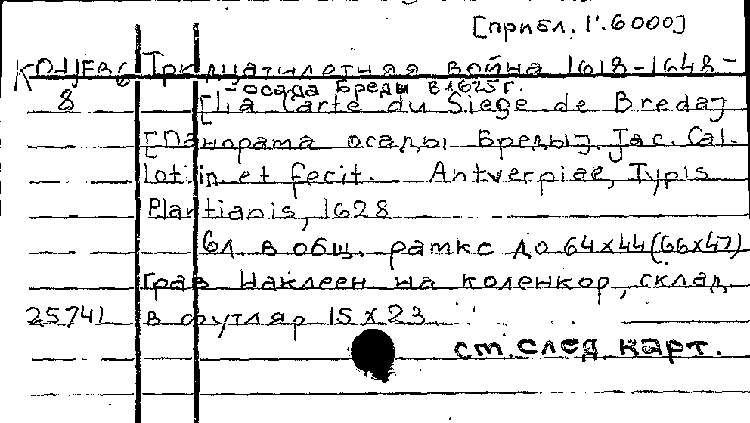 [прибл. 1:6000]
Тридцатилетняя война 1618-1648-
- осада Бреды в 1625г.
8 [La Carte du Siege de Breda]
[Панорама осады Бреды]. Jac. Cal.
lot in et fecit. Antverpiae, Typis
Plantianis, 1628
6л. в общ. рамке до 64x44 (66x47)
грав. Наклеен на коленкор, склад.
25741 в футляр 15x23
см. след. карт.